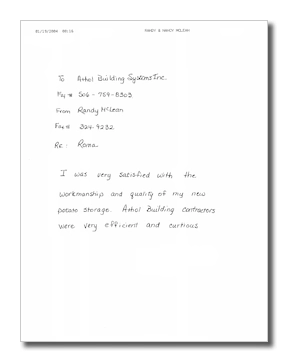 RANDY & NANCY MCLEAN
To Athol Building Systems Inc.
Fax # 506-759-8303
From Randy McLean
Fax # 324-9232
Re: Roma.
I was very satisfied with the
workmanship and quality of my new
potato storage. Athol Building contractors
were very efficient and curtious